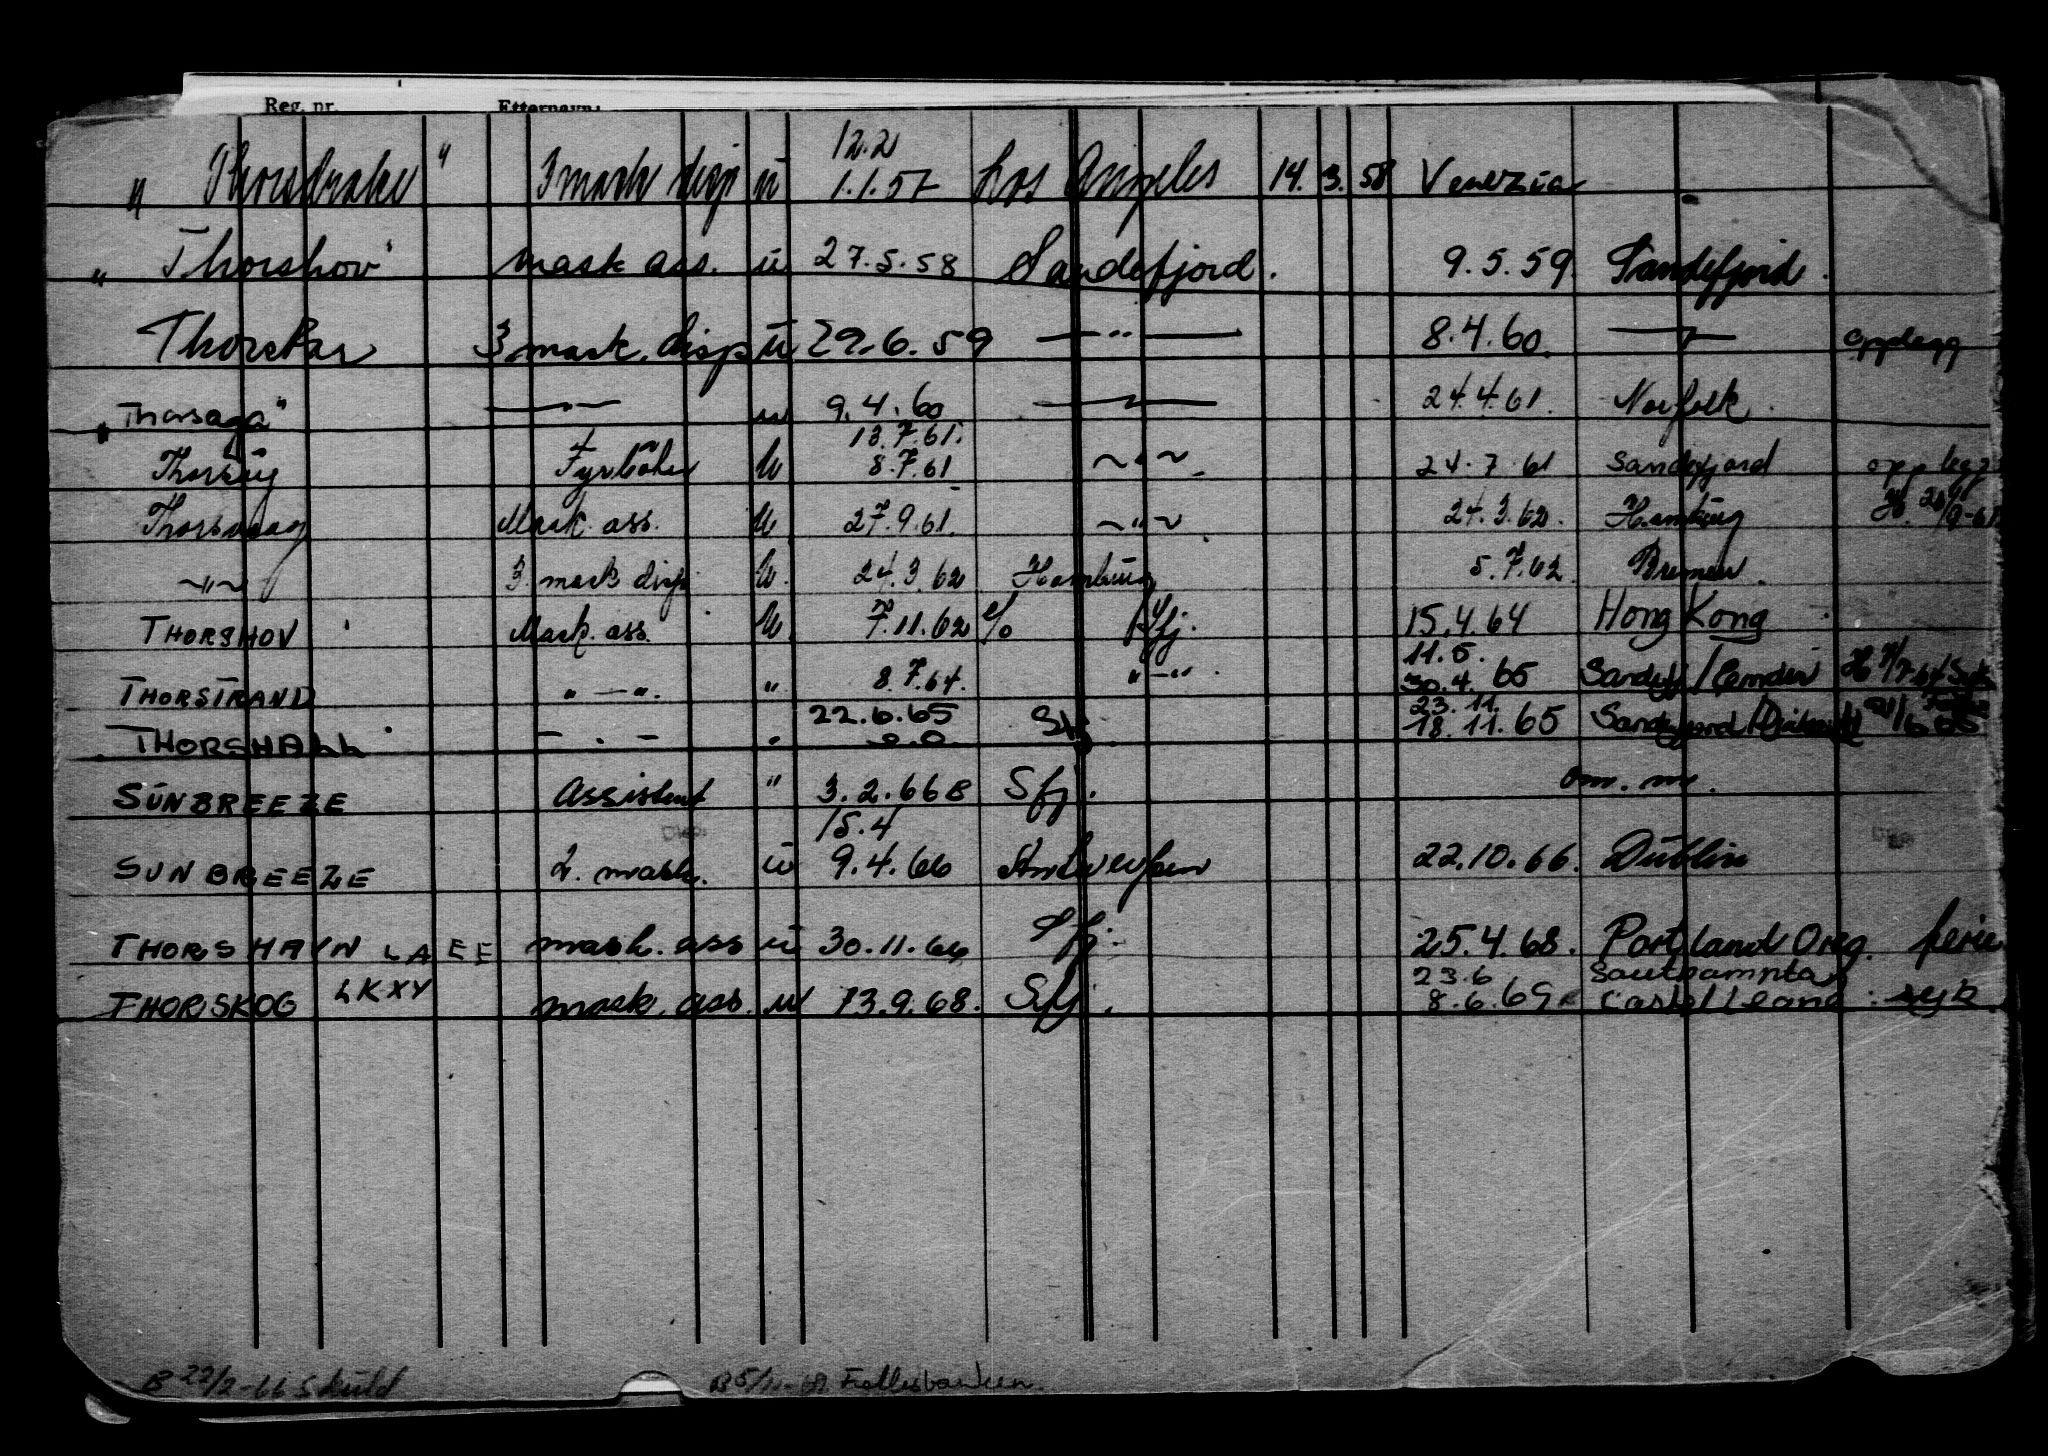 Reg. nr. Etternavn:
12.2
" Thorsdrake " 3 mask disp u 1.1.57 Los Angeles 14. 3. 58 Venezia
" Thorshov " mask ass. u 27.5.58 Sandefjord. 9.5.59. Sandefjord.
Thorskar 3 mask. disp u 29.6.59 —"— 8.4.60. —"— opplegg
" Thorsaga " —"— u 9.4.60 —"— 24.4.61. Norfolk.
13.7.61.
Fyrbøter u 8.7.61 ~"~ 24.7.61 Sandefjord opplegg
Mask. ass. u 27.9.61. ~"~ 24.3.62. Hamburg H. 20/9-61
~"~ 3. mask disp. u. 24.3.62 Hamburg 5.7.62. Bremen.
THORSHOV Mask. ass. u 7.11.62 Sfj. 15.4.64 Hong Kong
11.5.
THORSTRAND " — ". " 8.7.64. " — " 30.4. 65 Sandefj /
22.6.65 23.11.
THORSHALL — . — . 18.11.65 Sandefjord /
SUNBREEZE Assistent " 3.2.66 Sfj. om. m.
15.4
SUNBREEZE 2. mask. u 9.4.66 Antwerpen 22.10.66. Dublin
THORSHAVN LAEE mask. ass u 30.11.66 Sfj. 25.4.68. Portland Oreg. ferie
23.6 Southampton
THORSKOG LKXY mask. ass. u 13.9.68. Sfj. 8.6.69 : syk
B 22/2-66 Skuld B 5/11-68 Fellesbanken.